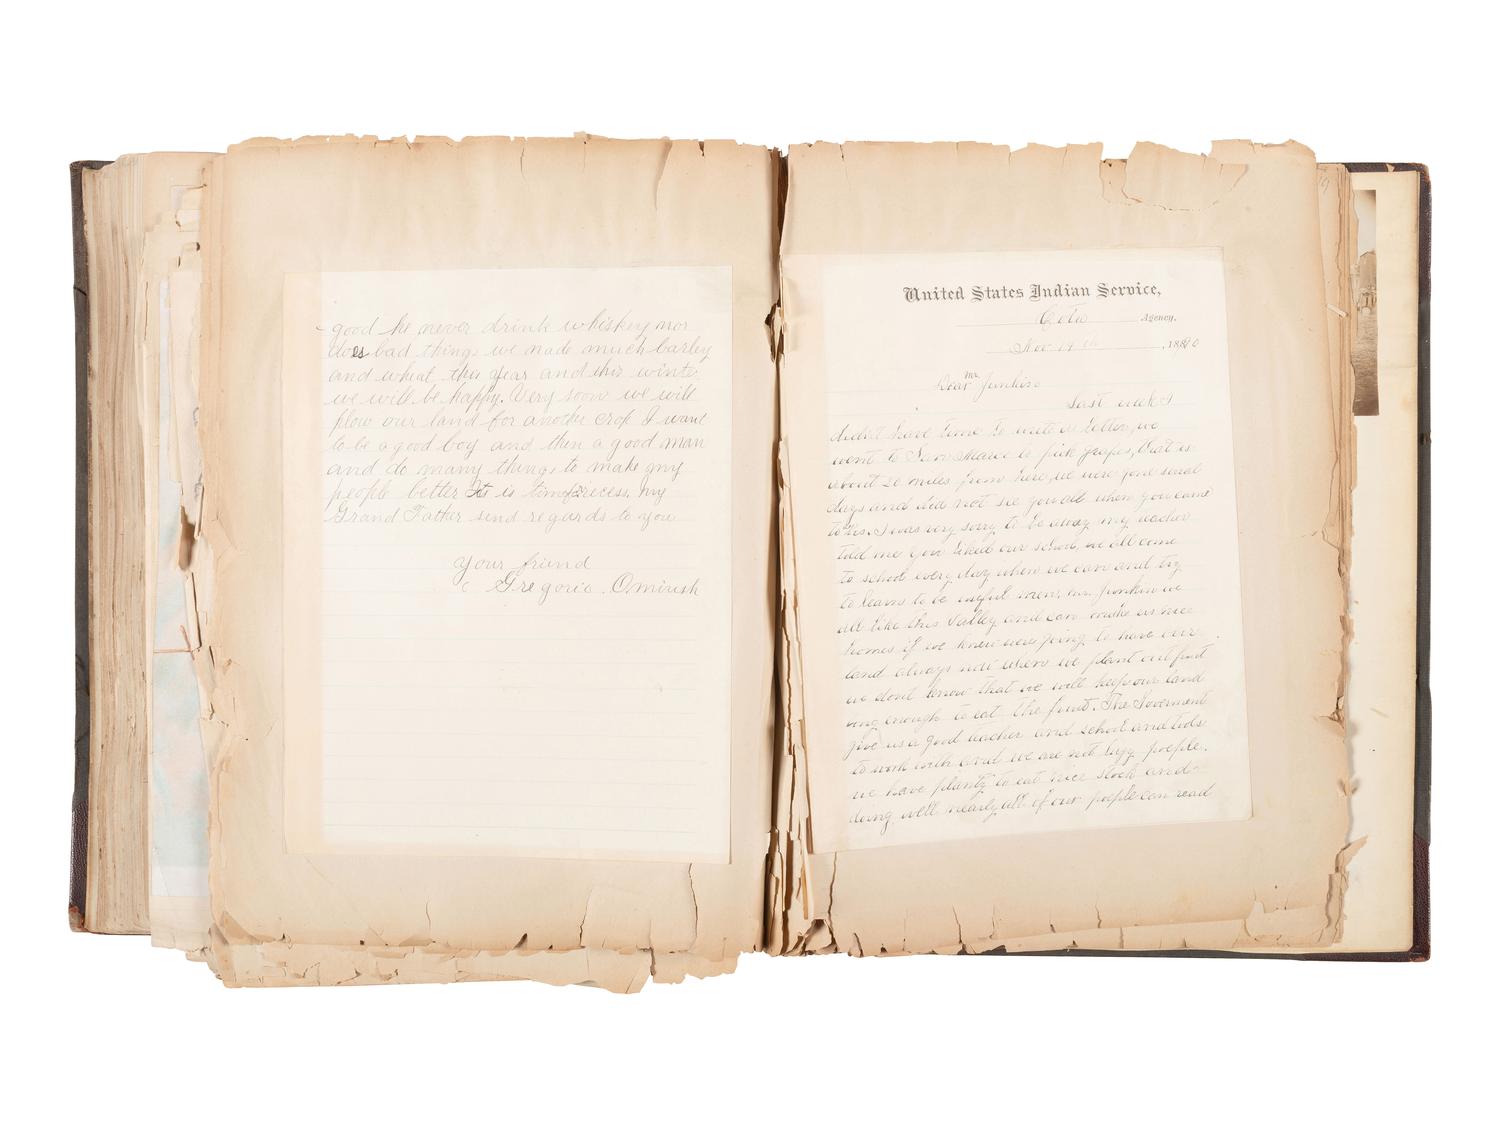 good he never drink whiskey nor
does bad things we made much barley
and wheat this year and this winte
we will be happy. Very soon we will
plow our land for another crop I want
to be a good boy and then a good man
and do many things to make my
people better It is time recess. My
Grand Father send regards to you
Your friend
Gregorio. Omirish
United States Indian Service,
Agency.
Nov 19th, 1890
Dear Mr Junkin
Last week I
didn't have time to write a letter, we
went to San Marco to pick grapes, that is
about 20 miles from here, we were gone several
days and did not see you all when you came
to us. I was very sorry to be away my teacher
told me you liked our school, we all come
to school every day when we can and try
to learn to be useful men, Mr. Junkin we
all like this Valley and can make us nice
homes if we knew were going to have our
land always now when we plant out fruit
we dont know that we will keep our land
long enough to eat the fruit. The Goverment
give us a good teacher and school and tools
to work with and we are not lazy poeple.
we have planty to eat nice stock and
doing well nearly all of our poeple can read